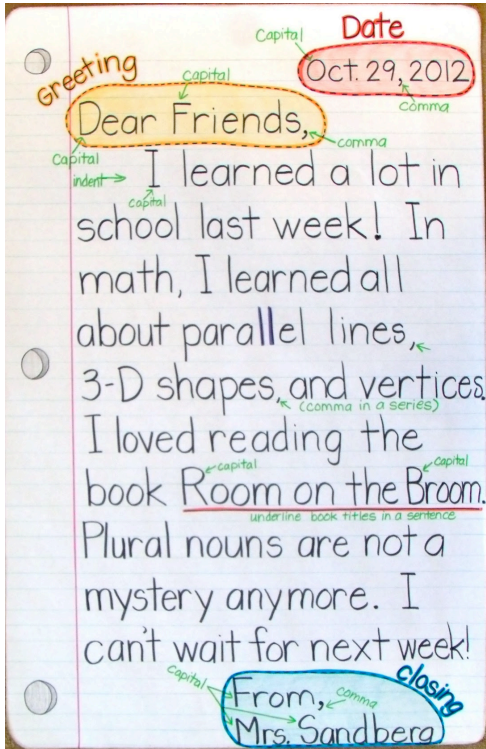 Date
Capital
Oct. 29, 2012
comma
Greeting
capital
Dear Friends,
comma
Capital
indent
I learned a lot in
capital
school last week! In
math, I learned all
about parallel lines,
3-D shapes, and vertices.
(comma in a series)
I loved reading the
capital
capital
book Room on the Broom.
underline book titles in a sentence
Plural nouns are not a
mystery anymore. I
can't wait for next week!
closing
capital
From,
comma
Mrs. Sandberg